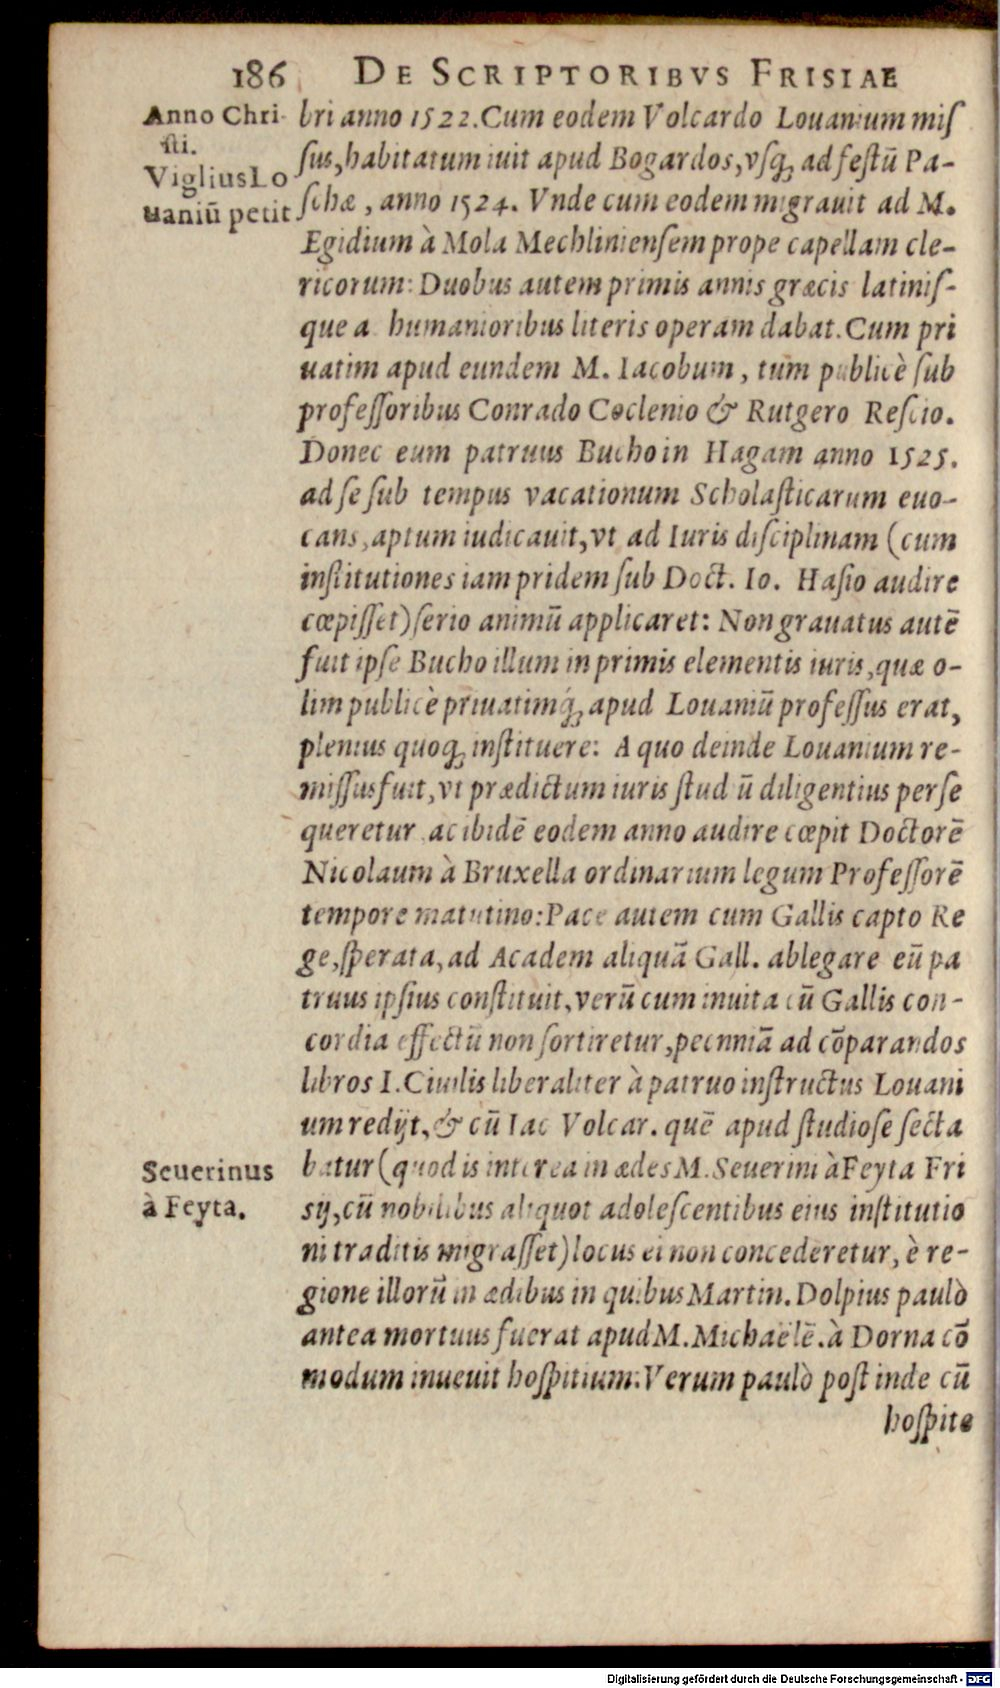 186 DE SCRIPTORIBVS FRISIAE
Anno Chri
sti.
Viglius Lo
uaniū petit
bri anno 1522. Cum eodem Volcardo Louanium miſ
ſus, habitatum iuit apud Bogardos, vſq́; ad feſtū Pa-
ſchæ, anno 1524. Vnde cum eodem migrauit ad M.
Egidium à Mola Mechlinienſem prope capellam cle-
ricorum: Duobus autem primis annis græcis latiniſ-
que a humanioribus literis operam dabat. Cum pri
uatim apud eundem M. Iacobum, tum publicè ſub
profeſſoribus Conrado Coclenio & Rutgero Reſcio.
Donec eum patruus Bucho in Hagam anno 1525.
ad ſe ſub tempus vacationum Scholaſticarum euo-
cans, aptum iudicauit, vt ad Iuris diſciplinam (cum
inſtitutiones iam pridem ſub Doct. Io. Haſio audire
cœpiſſet) ſerio animū applicaret: Non grauatus autē
fuit ipſe Bucho illum in primis elementis iuris, quæ o-
lim publicè priuatimq́; apud Louaniū profeſſus erat,
plenius quoq; inſtituere: A quo deinde Louanium re-
miſſus fuit, vt prædictum iuris ſtud ū diligentius perſe
queretur ac ibidē eodem anno audire cœpit Doctorē
Nicolaum à Bruxella ordinarium legum Profeſſorē
tempore matutino: Pace autem cum Gallis capto Re
ge, ſperata, ad Academ aliquā Gall. ablegare eū pa
truus ipſius conſtituit, verū cum inuita cū Gallis con-
cordia effectū non ſortiretur, pecnniā ad cōparandos
libros I. Ciuilis liberaliter à patruo inſtructus Louani
um redijt, & cū Iac Volcar. quē apud ſtudioſe ſecta
batur (quod is interea in ædes M. Seuerini à Feyta Fri
Seuerinus
à Feyta.
sij, cū nobilibus aliquot adoleſcentibus eius inſtitutio
ni traditis migraſſet) locus ei non concederetur, è re-
gione illorū in ædibus in quibus Martin. Dolpius paulò
antea mortuus fuerat apud M. Michaëlē. à Dorna cō
modum inueuit hoſpitium: Verum paulò poſt inde cū
hoſpite
Digitalisierung gefördert durch die Deutsche Forschungsgemeinschaft - DFG